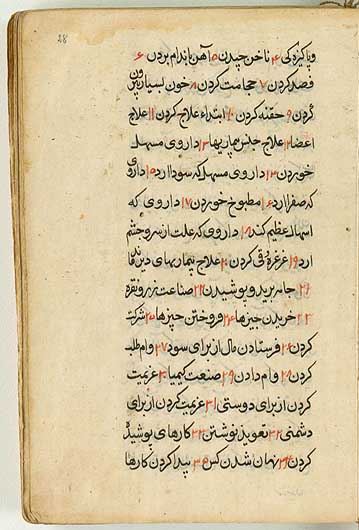 28
وپاکیزه کی ۴ ناخن چیدن ۵ آهن باندام بردن ۶
فصد کردن ۷ حجامت کردن ۸ خون بسیار بیرون
کردن ۹ حقنه کردن ۱۰ ابتداء علاج کردن ۱۱ علاج
اعضا ۱۲ علاج جنس ماریها ۱۳ داروی مسهل
خوردن ۱۴ داروی مسهل که سودا ارد ۱۵ داروی
که صفرا ارد ۱۶ مطبوخ خوردن ۱۷ داروی که
اسهال عظیم کند ۱۸ داروی که علت از سر و چشم
ارد ۱۹ غرغره وقی کردن ۲۰ علاج بیماریهای دیرینه
۲۱ جامه برید و پوشیدن ۲۲ صناعت زر و نقره
۲۳ خریدن چیزها ۲۴ فروختن چیزها ۲۵ شرکت
کردن ۲۶ فرستادن مال از برای سود ۲۷ وام طلب
کردن ۲۸ وام دادن ۲۹ صنعت کیمیا ۳۰ عزیمت
کردن از برای دوستی ۳۱ عزیمت کردن از برای
دشمنی ۳۲ تعویذ نوشتن ۳۳ کارهای پوشیده
کردن ۳۴ نهان شدن کس ۳۵ پیدا کردن کارها